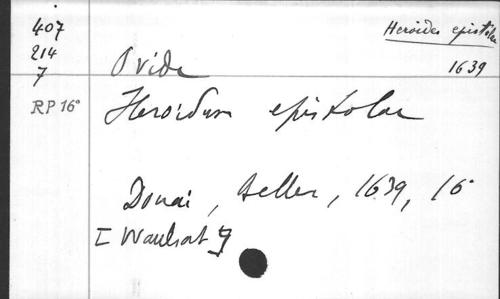 407
214
7
RP 16°
Heroides epistolae
1639
Ovide
Heroidum epistolae
Douai, Beller, 1639, 16°